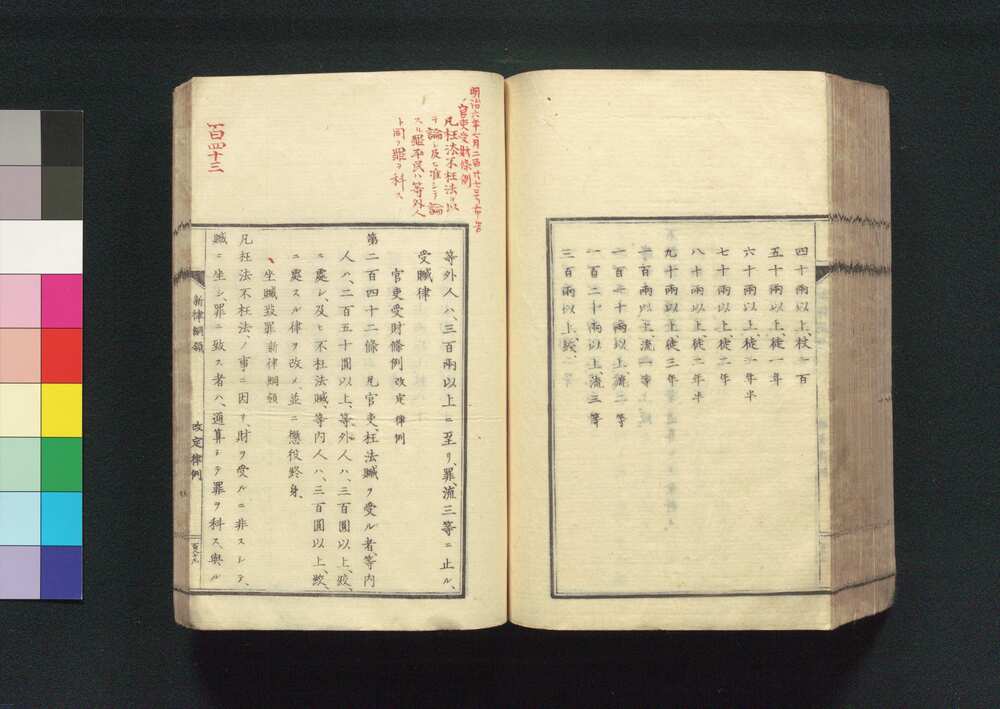 四十兩以上、杖一百
五十兩以上、徒一年
六十兩以上、徒一年半
七十兩以上、徒二年
八十兩以上、徒二年半
九十兩以上、徒三年
一百兩以上、流一等
一百一十兩以上、流二等
一百二十兩以上、流三等
三百兩以上、絞
明治六年 月二百廿七号布告
官吏受財條例
凡枉法不枉法ヲ以
テ論シ及ヒ准シテ論
スル罪平民ハ等外人
ト同ク罪ヲ科ス
百四十三
等外人ハ、三百兩以上ニ至リ、罪、流三等ニ止ル、
受贓律
官吏受財條例 改定律例
第二百四十二條 凡官吏、枉法贓ヲ受ル者、等内
人ハ、二百五十圓以上、等外人ハ、三百圓以上、絞
ニ處シ、及ヒ不枉法贓、等内人ハ、三百圓以上、絞
ニ處スル律ヲ改メ、並ニ懲役終身、
坐贓致罪 新律綱領
凡枉法不枉法ノ事ニ因テ、財ヲ受ルニ非スシテ、
贓ニ坐シ、罪ニ致ス者ハ、通算シテ罪ヲ科ス、與ル
新律綱領
改定律例